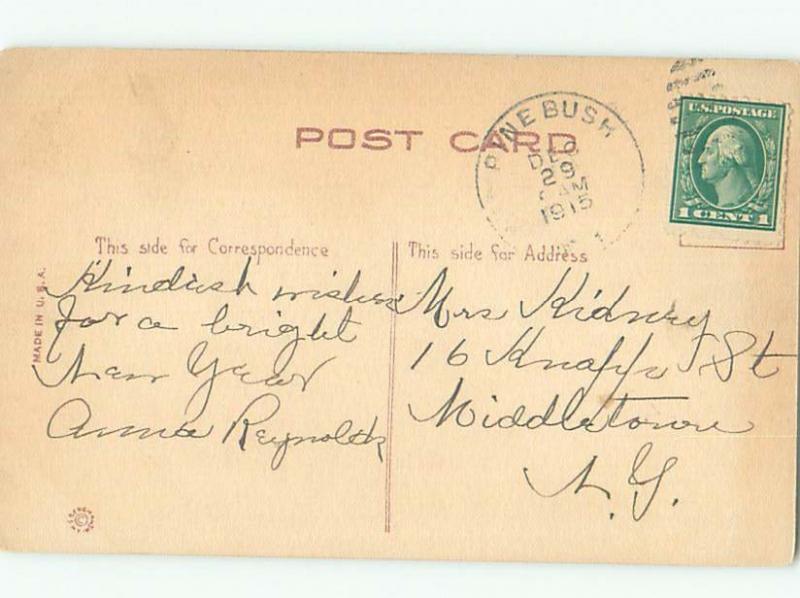 POST CARD
PINE BUSH
DEC
29
AM
1915
U.S. POSTAGE
1 CENT 1
This side for Correspondence
Kindest wishes
for a bright
New Year
Anna Reynolds
This side for Address
Mrs Kidney
16 Knapp St
Middletown
N.Y.
MADE IN U.S.A.